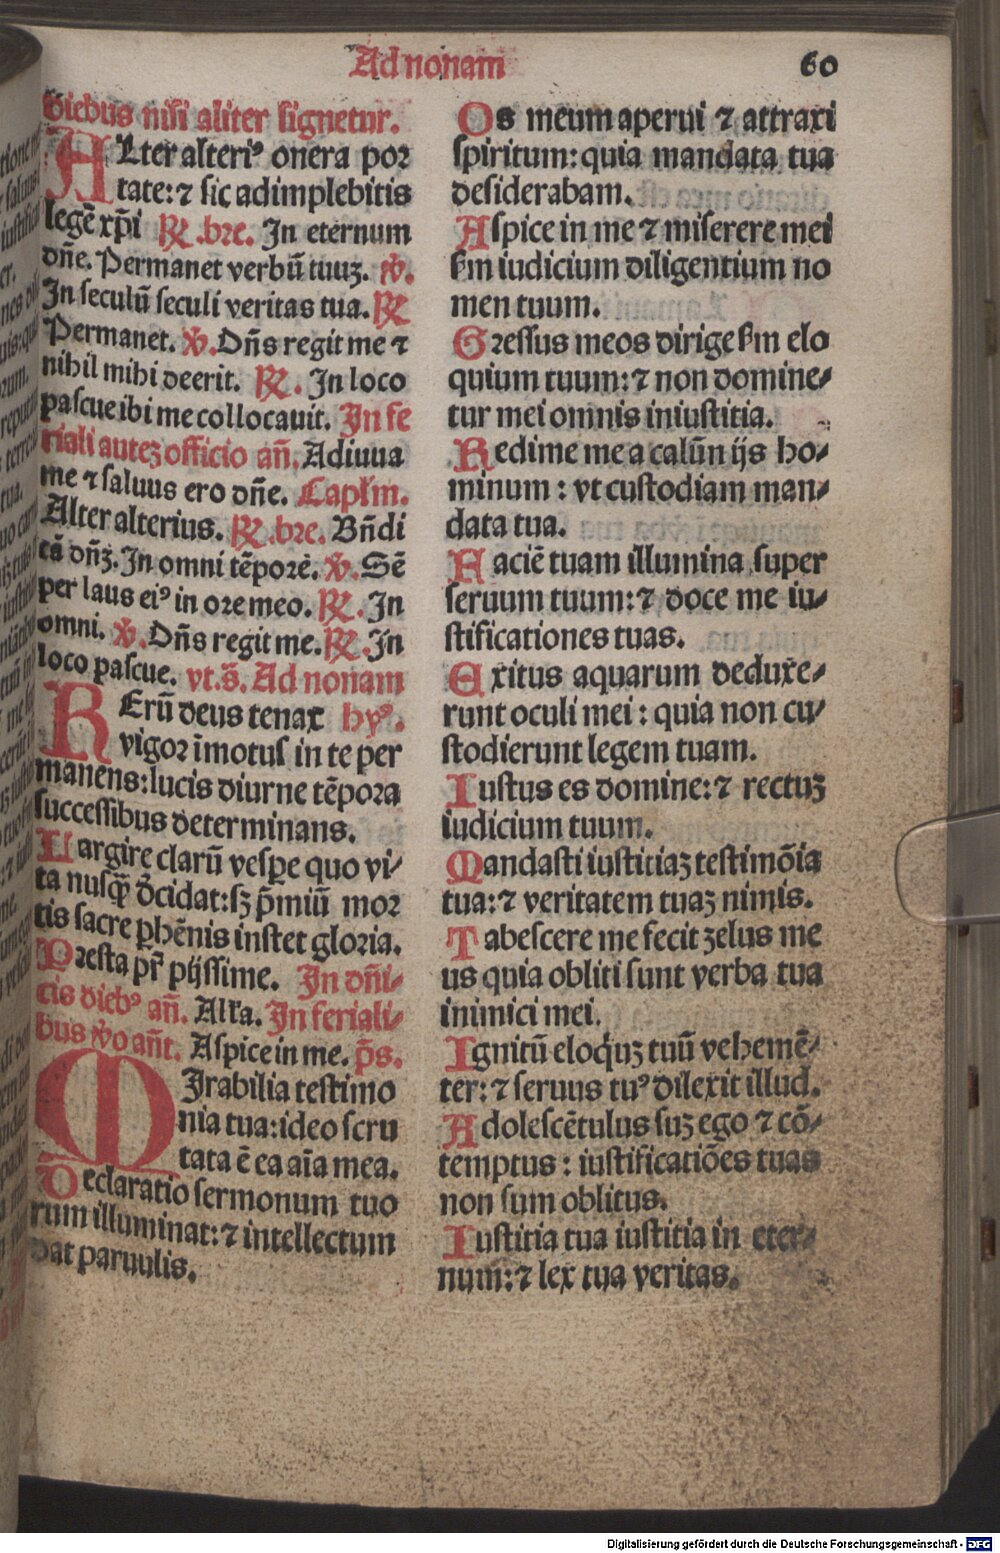 Ad nonam
60
diebus nisi aliter signetur.
ALter alteriꝰ onera por
tate: ⁊ sic adimplebitis
legē xp̄i ℟ .bre. In eternum
dn̄e. Permanet verbū tuuꝫ. ℣.
In seculū seculi veritas tua. ℟
Permanet. ℣. Dn̄s regit me ⁊
nihil mihi deerit. ℟. In loco
pascue ibi me collocauit. In fe
riali auteꝫ officio an̄. Adiuua
me ⁊ saluus ero dn̄e. Capl̄m.
Alter alterius. ℟ .bre. Bn̄di
cā dn̄ꝫ. In omni tēpore. ℣. Sē
per laus eiꝰ in ore meo. ℟. In
omni. ℣. Dn̄s regit me. ℟. In
loco pascue. vt.s̄. Ad nonam
RErū deus tenax hyꝰ.
vigor īmotus in te per
manens: lucis diurne tēpora
successibus determinans.
Largire clarū vesꝑe quo vi⸗
ta nusꝙ̄ d̄cidat: sꝫ p̄miū mor
tis sacre ꝑhēnis instet gloria.
Presta pr̄ pijssime. In dn̄i⸗
cis diebꝰ an̄. Alľa. In feriali⸗
bus v̊o an̄t. Aspice in me. p̄s.
MIrabilia testimo
nia tua: ideo scru
tata ē ea aīa mea.
Declaratio sermonum tuo
rum illuminat: ⁊ intellectum
dat paruulis.
Os meum aperui ⁊ attraxi
spiritum: quia mandata tua
desiderabam.
Aspice in me ⁊ miserere mei
ẜm iudicium diligentium no
men tuum.
Gressus meos dirige ẜm elo
quium tuum: ⁊ non domine⸗
tur mei omnis iniustitia.
Redime me a calūnijs ho⸗
minum : vt custodiam man⸗
data tua.
Faciē tuam illumina super
seruum tuum: ⁊ doce me iu⸗
stificationes tuas.
Exitus aquarum deduxe⸗
runt oculi mei : quia non cu⸗
stodierunt legem tuam.
Iustus es domine: ⁊ rectuꝫ
iudicium tuum.
Mandasti iustitiaꝫ testimōia
tua: ⁊ veritatem tuaꝫ nimis.
Tabescere me fecit zelus me
us quia obliti sunt verba tua
inimici mei.
Ignitū eloq̇uꝫ tuū vehemē⸗
ter: ⁊ seruus tuꝰ dilexit illud.
Adolescētulus suꝫ ego ⁊ cō⸗
temptus : iustificatiōes tuas
non sum oblitus.
Iustitia tua iustitia in eter⸗
num: ⁊ lex tua veritas.
Digitalisierung gefördert durch die Deutsche Forschungsgemeinschaft - DFG